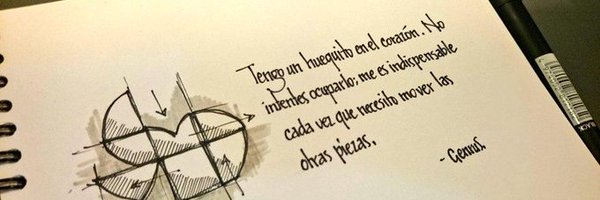 Tengo un huequito en el corazón. No
intentes ocuparlo; me es indispensable
cada vez que necesito mover las
otras piezas.